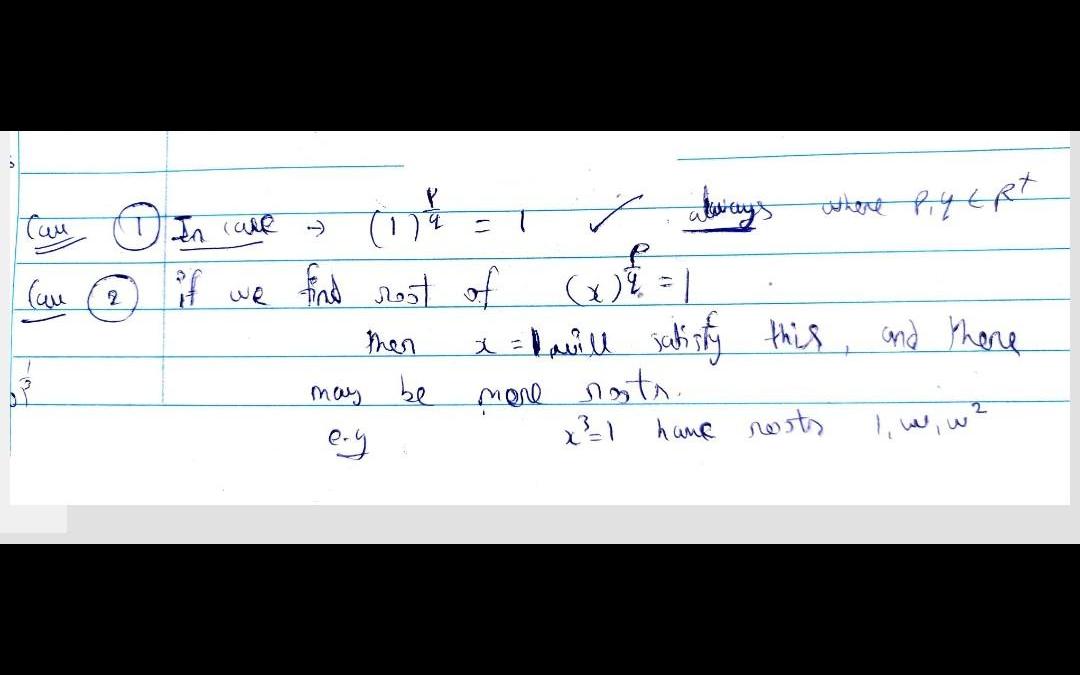 Case ① In case → (1)^{p/q} = 1 ✓ always where P, q ∈ R⁺
Case ② if we find root of (x)^{p/q} = 1
then x = 1 will satisfy this, and there
may be more roots.
e.g x³=1 have roots 1, w, w²